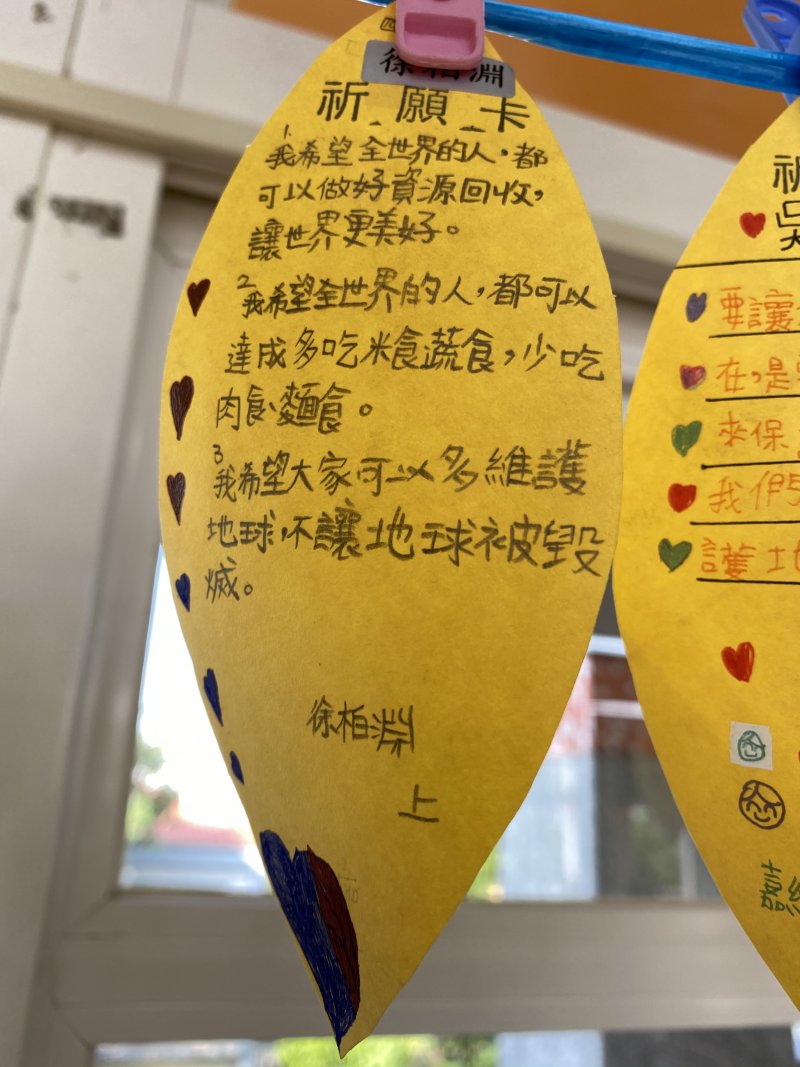 徐柏淵
祈願卡
1.我希望全世界的人，都
可以做好資源回收，
讓世界更美好。
2我希望全世界的人，都可以
達成多吃米食蔬食，少吃
肉食、麵食。
3我希望大家可以多維護
地球，不讓地球被毀
滅。
徐柏淵
上
祈
吳
要讓
在，是
來保
我們
護地